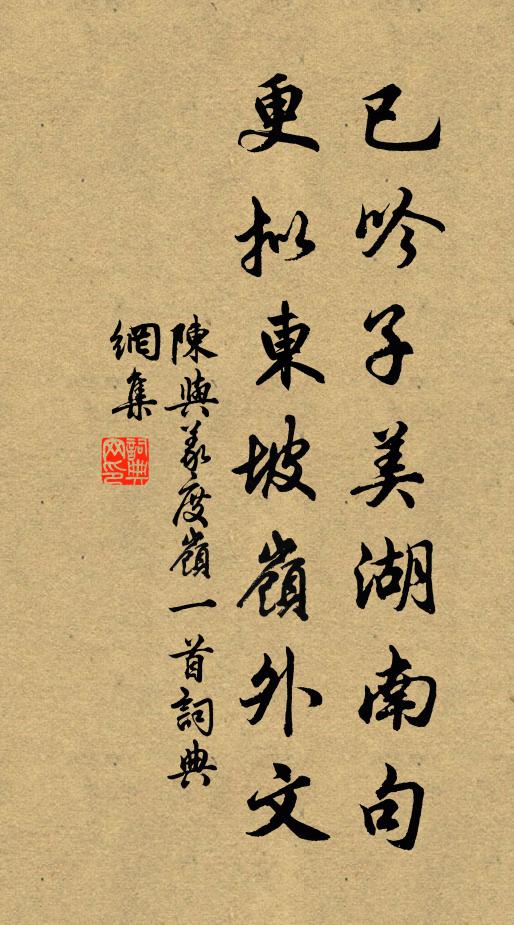 已吟子美湖南句
更拟東坡嶺外文
陳與義度嶺一首詞典
網集
詞典網印